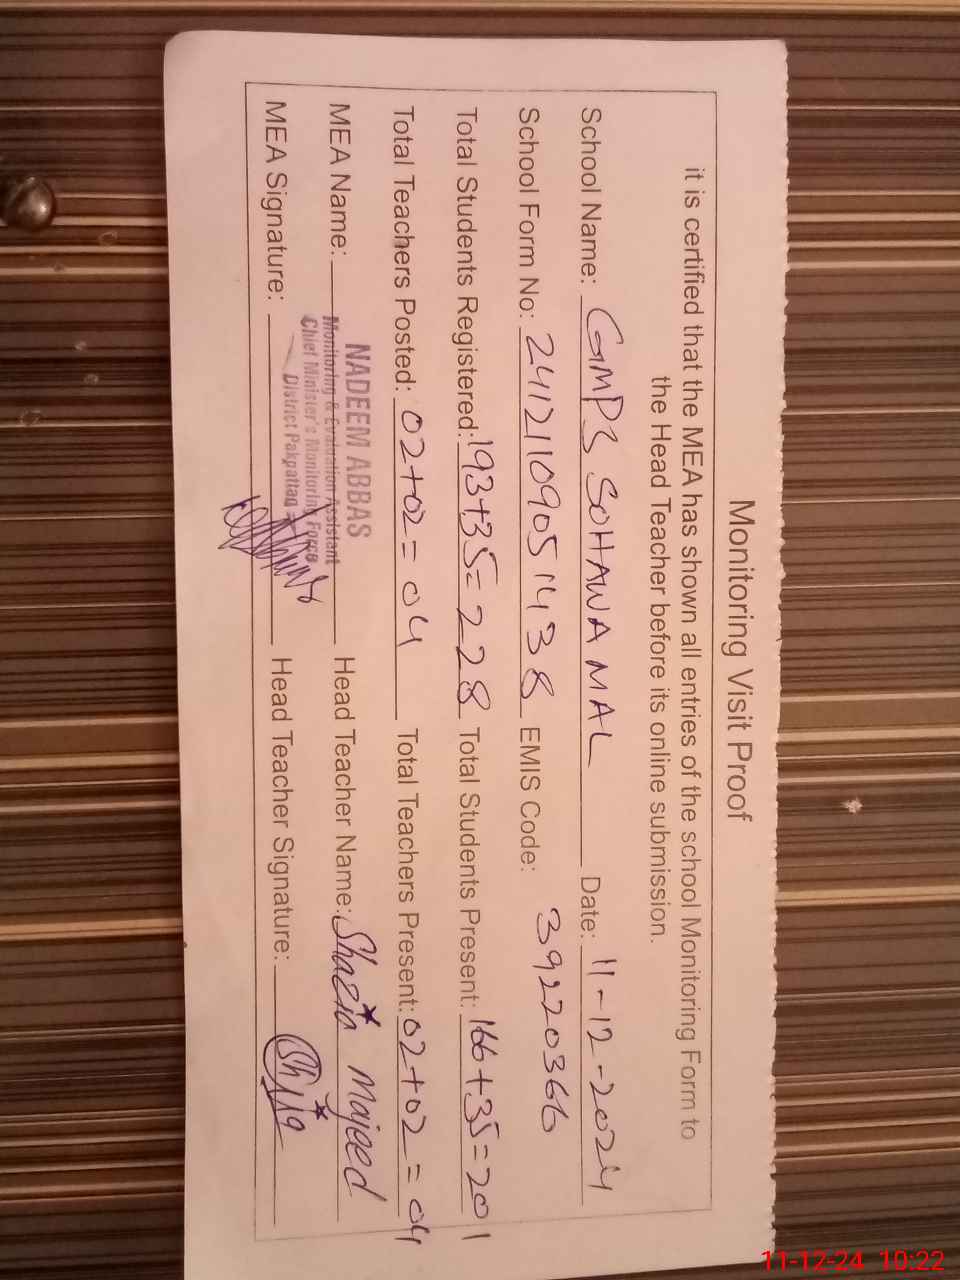 Monitoring Visit Proof
it is certified that the MEA has shown all entries of the school Monitoring Form to
the Head Teacher before its online submission.
School Name: GMPS SOHAWA MAL Date: 11-12-2024
School Form No: 24121109051438 EMIS Code: 39220366
Total Students Registered: 193+35=228 Total Students Present: 166+35=201
Total Teachers Posted: 02+02=04 Total Teachers Present: 02+02=04
NADEEM ABBAS
MEA Name: Monitoring & Evaluation Assistant Head Teacher Name: Shazia Majeed
Chief Minister's Monitoring Force
District Pakpattan
MEA Signature: Head Teacher Signature:
11-12-24 10:22